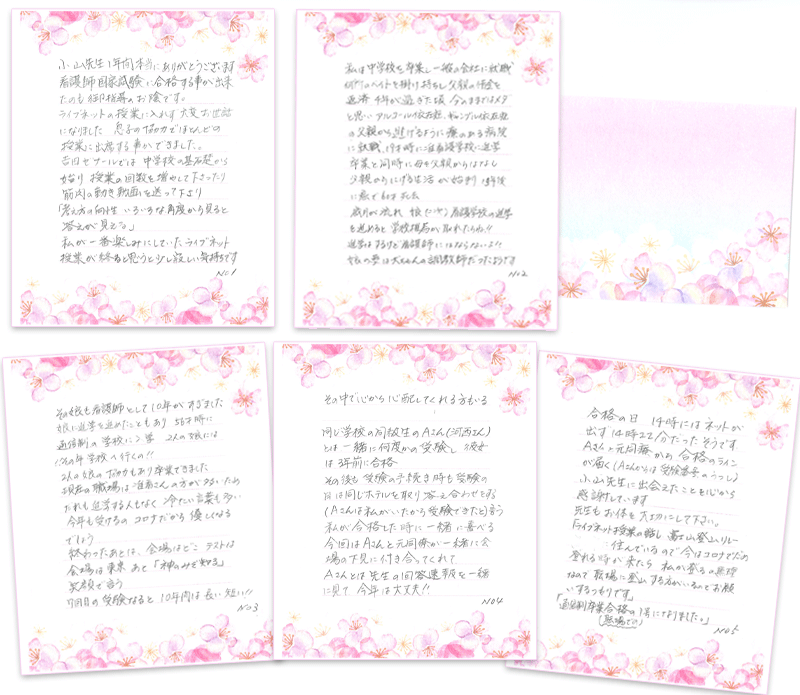 小山先生1年間本当にありがとうございます
看護師国家試験に合格する事が出来
たのも御指導のお陰です。
ライブネットの授業に入れず大変お世話
になりました 息子の協力でほとんどの
授業に出席する事ができました。
吉田ゼミナールでは 中学校の基礎から
始り 授業の回数を増やして下さったり
筋肉の動き動画を送って下さり
「考え方の向性 いろいろな角度から見ると
答えが見える。」
私が一番楽しみにしていたライブネット
授業が終ると思うと少し寂しい気持ちです
No1
私は中学校を卒業し一般の会社に就職
バイトを掛け持ちし父親の借金を
返済 4年が過ぎた頃 今のままではダメ
と思い アルコール依存症、ギャンブル依存症
の父親から逃げるように寮のある病院
に就職、19才時に准看護学校に進学
卒業と同時に母を父親からはなし
父親からにげる生活が始まり 13年後
に癌で 死去
歳月が流れ 娘たちに看護学校の進学
を進めると 学校
進学はするけど看護師にはならないよ!!
娘の夢は犬の調教師だったようです
No2
その娘も看護師として10年がすぎました
娘に進学を進めたこともあり 55才時に
通信制の学校に入学 2人の娘には
その年 学校へ行くの!!
2人の娘の協力もあり卒業できました
現在の職場は准看さんの方が多いため
だれも進学する人もなく 冷たい言葉も多い
今年も受けるの コロナだから優しくなる
でしょう
終わったあとは、会場はどこ テストは
会場は東京 あと「神のみぞ知る」
笑顔で言う
7回目の受験となると 10年間は長い短い!!
No3
その中で心から心配してくれる方もいる
同じ学校の同級生のAさん(河西さん)
とは一緒に何度かの受験し 彼女
は3年前に合格
その後も受験の手続き時も受験の
日は同じホテルを取り答え合わせをする
(Aさんは私がいたから受験できたと)言う
私が合格した時に一緒に喜べる
今回はAさんと元同僚が一緒に会
場の下見に付き合ってくれて
Aさんとは先生の回答速報を一緒
に見て 今年は大丈夫!!
No4
合格の日 14時にはネットが
出す14時22分だったそうです
Aさんと元同僚から合格のライン
が届く(Aさんからは受験番号のうつし)
小山先生に出会えたことを心から
感謝しています
先生もお体を大切にして下さい。
「ライブネット授業の話し 富士山登山リレー
住んでいるので今はコロナでだめ
登れる時が来たら 私が登るの無理
なので職場に登山する方がいるのでお願
いするつもりです」
「通信制卒業合格の1号になりました。」
(職場での)
No5